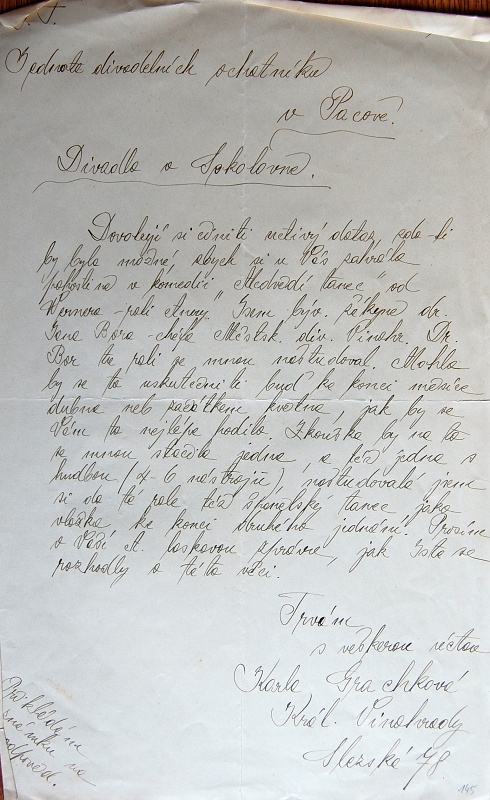 P. T.
Jednotě divadelních ochotníků
v Pacově.
Divadlo v Sokolovně.
Dovoluji si učiniti uctivý dotaz, zda-li
by bylo možné, abych si u Vás zahrála
pohostinsky v komedii "Medvědí tanec" od
Wernera - roli Anny." Jsem býv. žákyně dr.
Jana Bora - chéfa Městsk. div. Vinohr. Dr.
Bor tu roli se mnou nastudoval. Mohla
by se to uskutečniti buď ke konci měsíce
dubna neb začátkem května, jak by se
Vám to nejlépe hodilo. Zkouška by na to
se mnou stačila jedna a též jedna s
hudbou (4-6 nástrojů), nastudovala jsem
si do té role též španělský tanec jako
vložku ke konci druhého jednání. Prosím
o Vaši ct. laskavou zprávu, jak jste se
rozhodly o této věci.
Trvám
s veškerou úctou
Karla Grachková
Král. Vinohrady
Slezská 78.
Přikládám
známku na
odpověď.
145